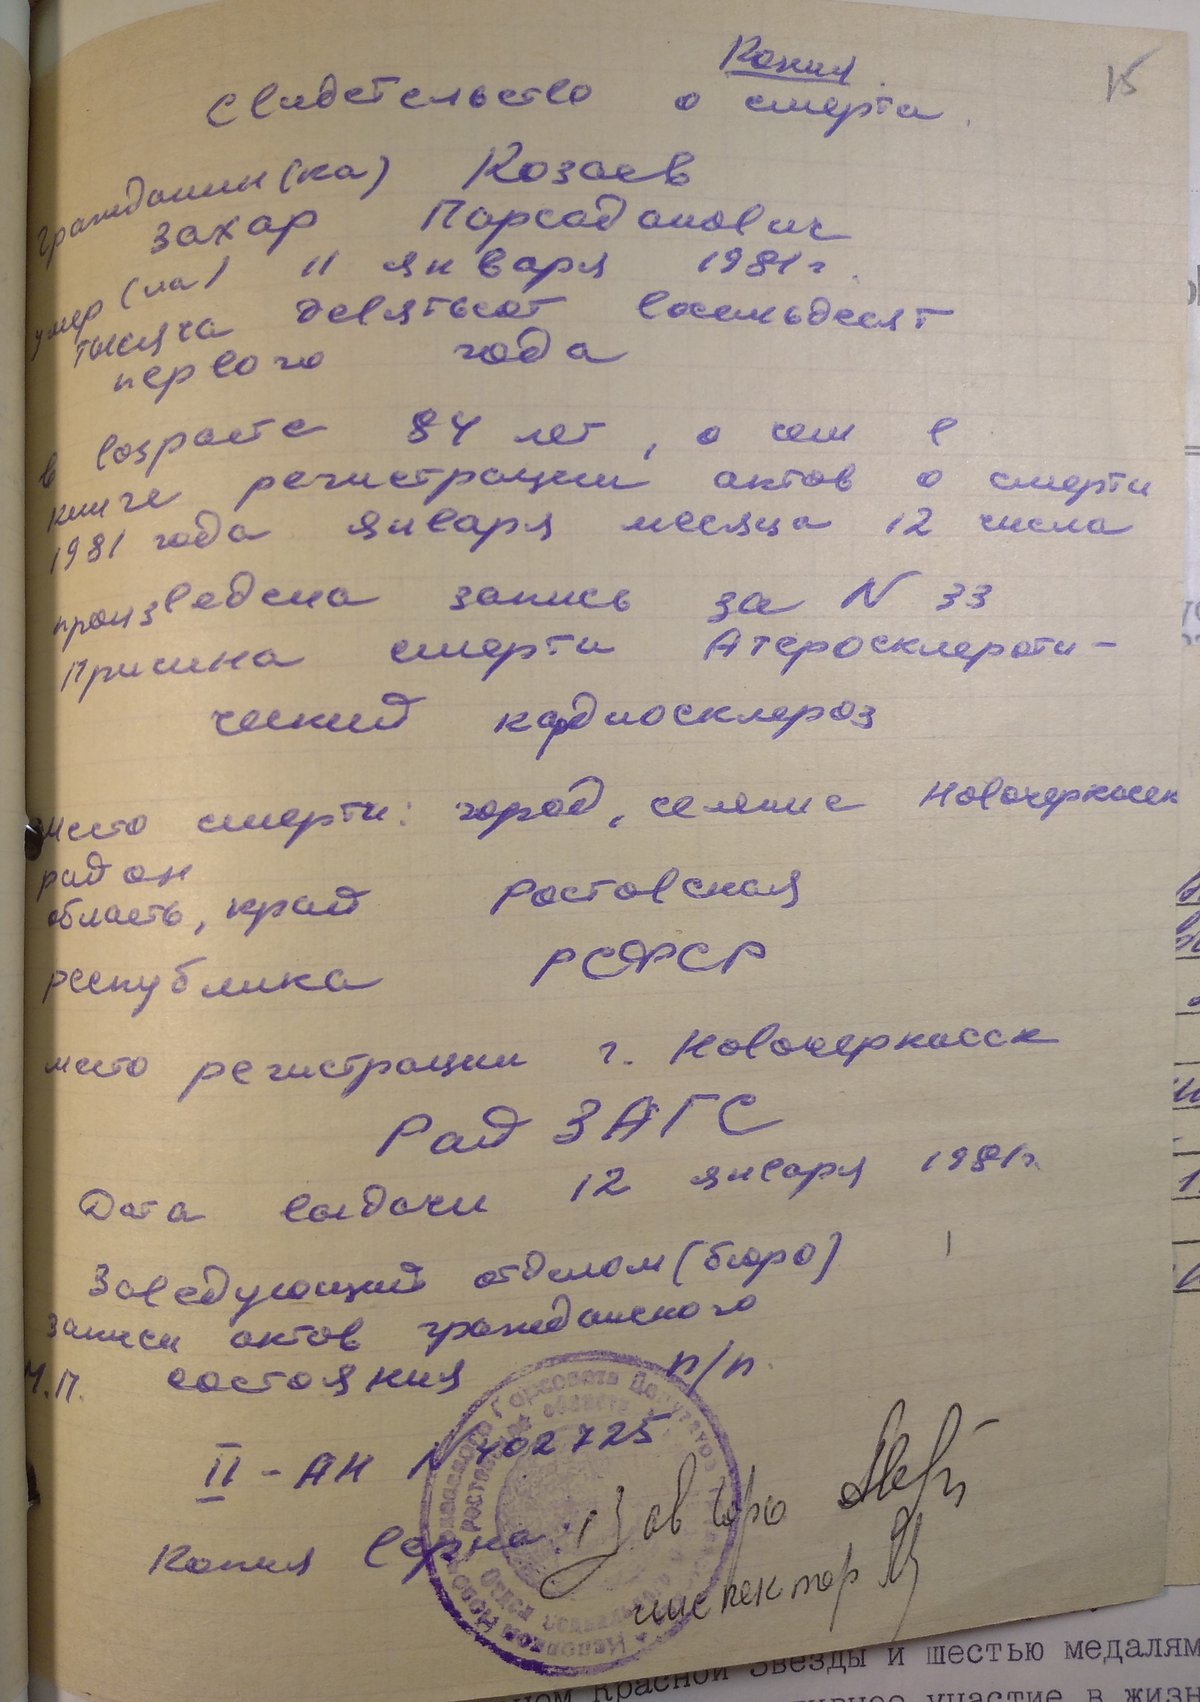 Копия
15
Свидетельство о смерти.
Гражданин(ка) Козаев
Захар Парсаданович
умер(ла) 11 января 1981г.
тысяча девятьсот восемьдесят
первого года
в возрасте 84 лет, о чем в
книге регистрации актов о смерти
1981 года января месяца 12 числа
произведена запись за N 33
Причина смерти Атеросклероти-
ческий кардиосклероз
место смерти: город, селение Новочеркасск
район
область, край Ростовская
республика РСФСР
место регистрации г. Новочеркасск
Рай ЗАГС
Дата выдачи 12 января 1981г.
Заведующий отделом (бюро)
записи актов гражданского
М.П. состояния п/п.
II - АН N 402725
Копия верна: Зав бюро
инспектор
Красной Звезды и шестью медалям
участие в жизн